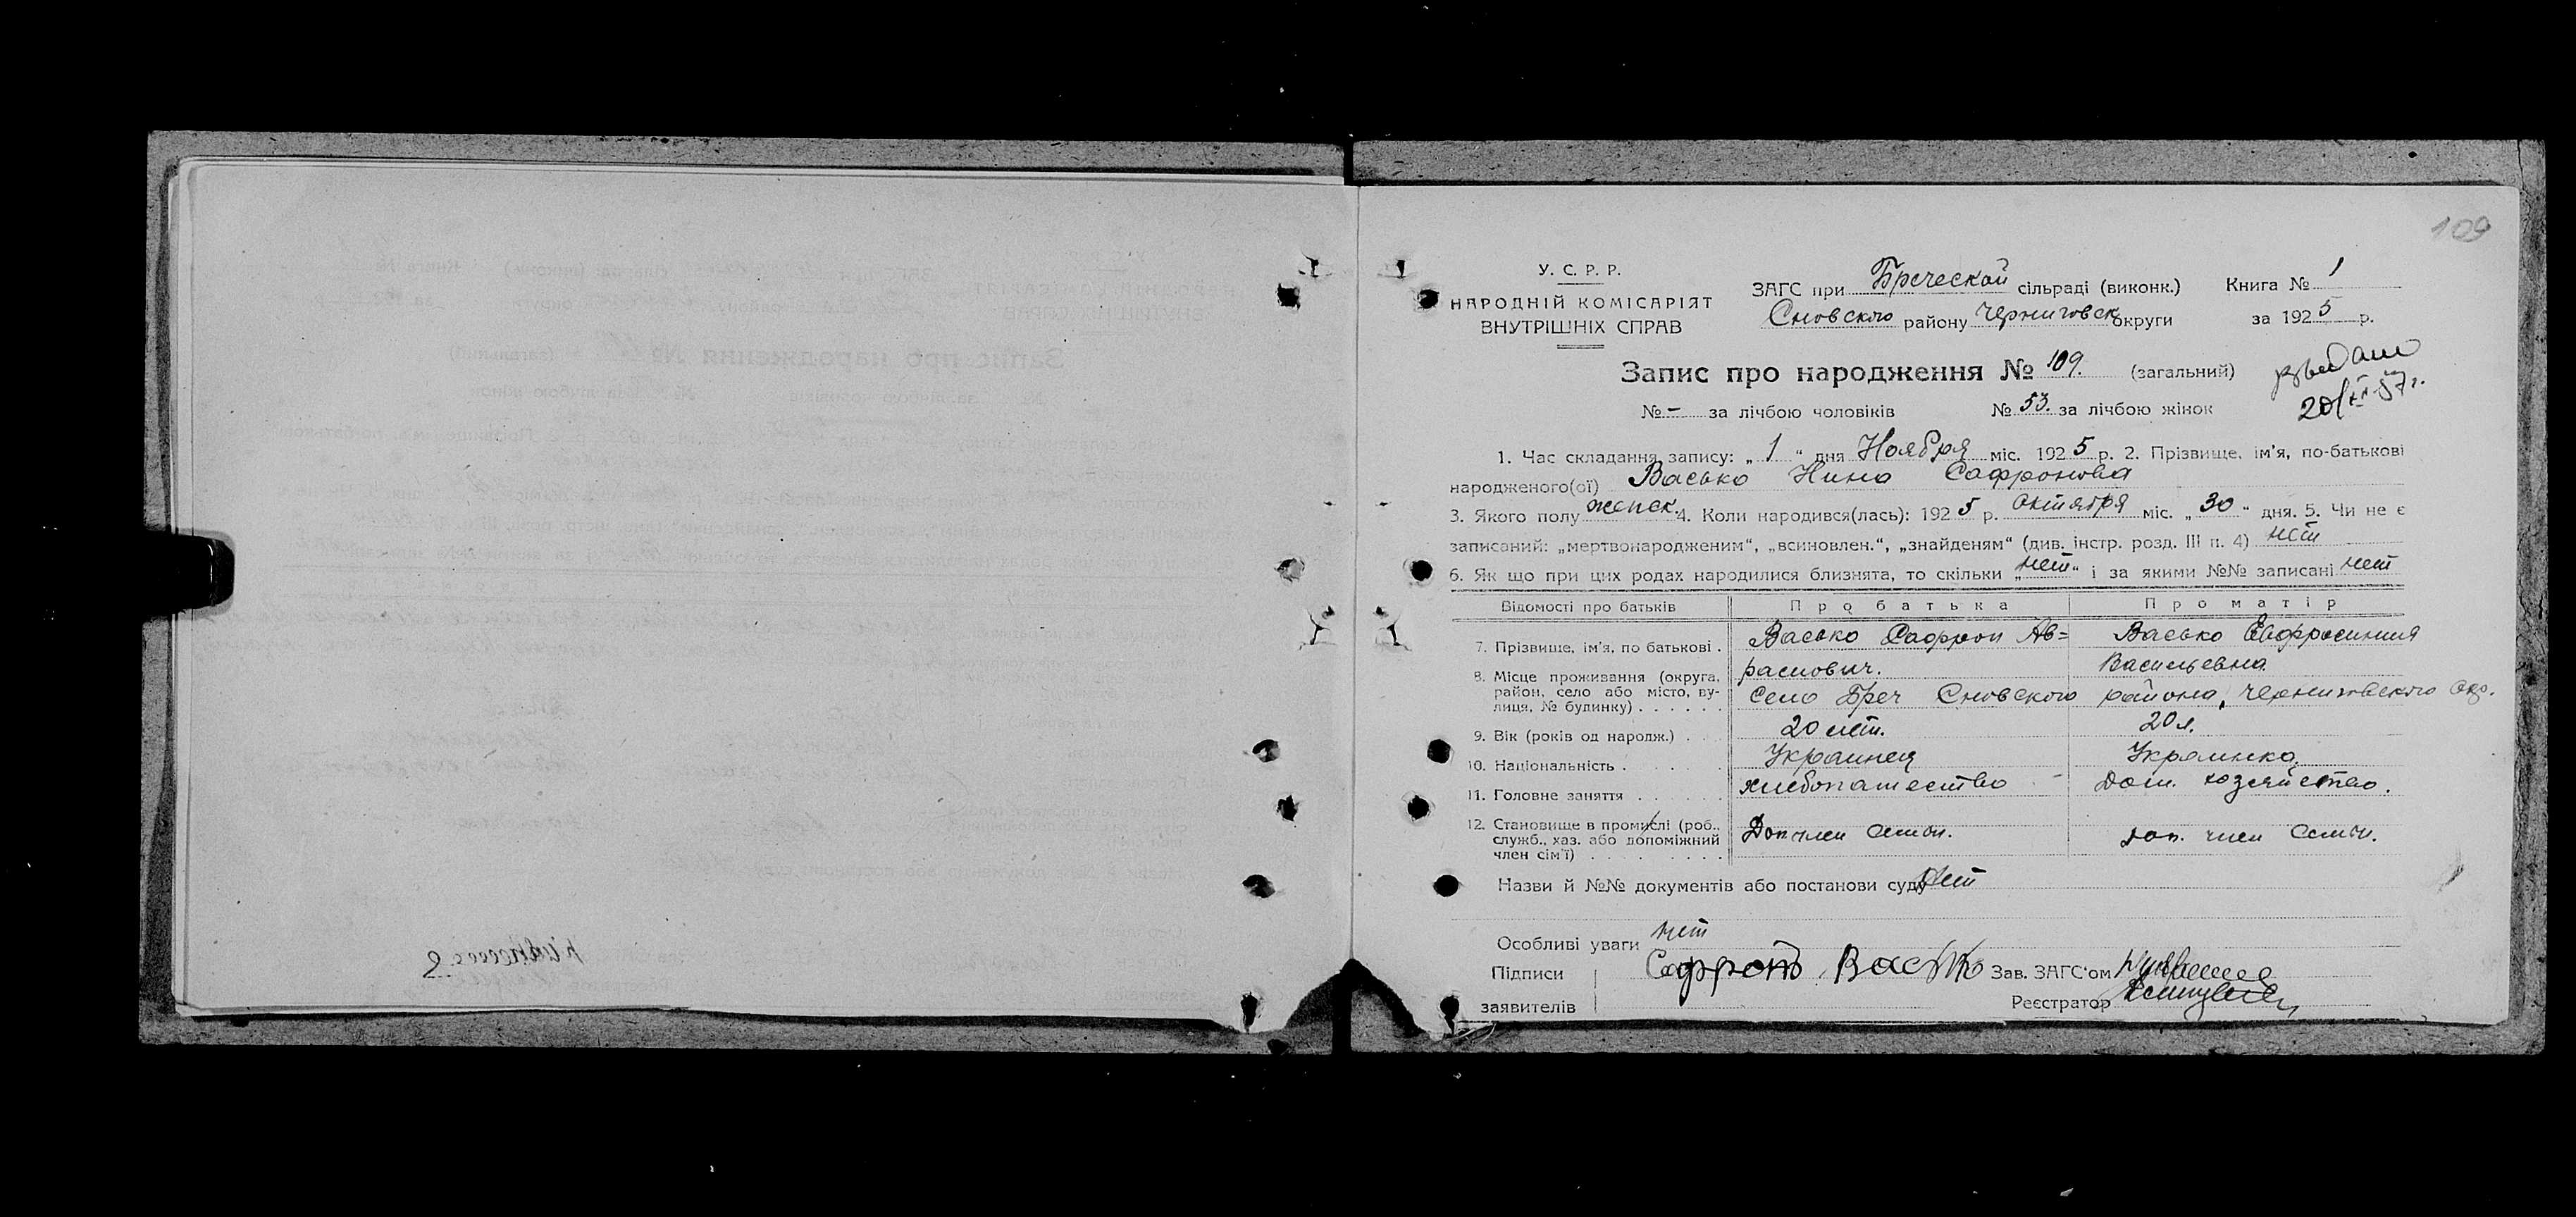 109
У. С. Р. Р.
НАРОДНІЙ КОМІСАРІЯТ
ВНУТРІШНІХ СПРАВ
ЗАГС при Бреческой сільраді (виконк.) Книга № 1
Сновского району Черниговск округи за 1925 р.
Запис про народження № 109. (загальний)
20/XI-57г.
№ - за лічбою чоловіків № 53. за лічбою жінок
1. Час складання запису: „ 1 “ дня Ноября міс. 1925 р. 2. Прізвище, ім’я, по-батькові
народженого(ої) Васько Нина Сафронова
3. Якого полу женск. 4. Коли народився(лась): 1925 р. октября міс. „ 30 “ дня. 5. Чи не є
записаний: „мертвонародженим“, „всиновлен.“, „знайденям“ (див. інстр. розд. III п. 4) нет
6. Як що при цих родах народилися близнята, то скільки „нет“ і за якими №№ записані нет
Відомості про батьків Про батька Про матір
7. Прізвище, ім’я, по батькові . Васько Сафрон Ав= Васько Евфросиния
рамович. Васильевна
8. Місце проживання (округа, район, село або місто, вулиця, № будинку) . . . . . . Село Бреч Сновского района, Черниговского окр.
9. Вік (років од народж.) . . 20 лет. 20 л.
10. Національність . . . . . Украинец Украинка
11. Головне заняття . . . . . хлебопашество - Дом. хозяйство.
12. Становище в промислі (роб., служб., хаз. або допоміжний член сім’ї) . . . . . . . . Доп член семьи. доп. член семьи.
Назви й №№ документів або постанови суду нет
Особливі уваги нет
Підписи Сафронъ Васько Зав. ЗАГС’ом
заявителів Реєстратор